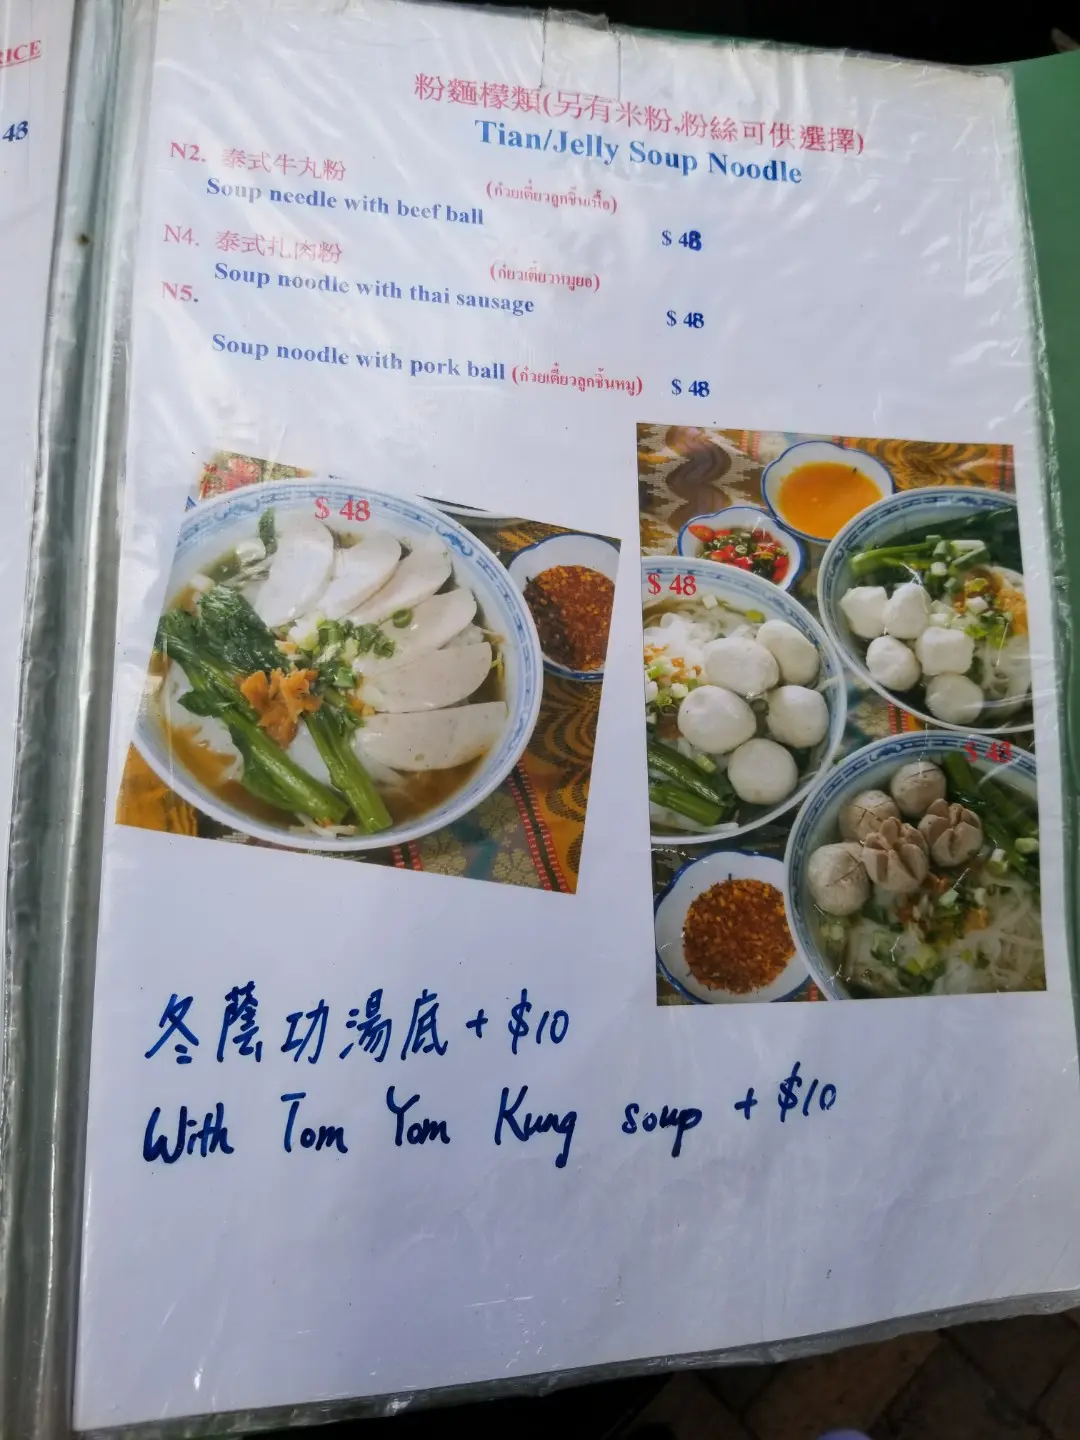 RICE
48
粉麵檬類(另有米粉,粉絲可供選擇)
Tian/Jelly Soup Noodle
N2. 泰式牛丸粉
Soup needle with beef ball (ก๋วยเตี๋ยวลูกชิ้นเนื้อ) $ 48
N4. 泰式扎肉粉
Soup noodle with thai sausage (ก๋ยวเตี๋ยวหมูยอ) $ 48
N5.
Soup noodle with pork ball (ก๋วยเตี๋ยวลูกชิ้นหมู) $ 48
$ 48
$ 48
$ 48
冬蔭功湯底 + $10
With Tom Yom Kung soup + $10